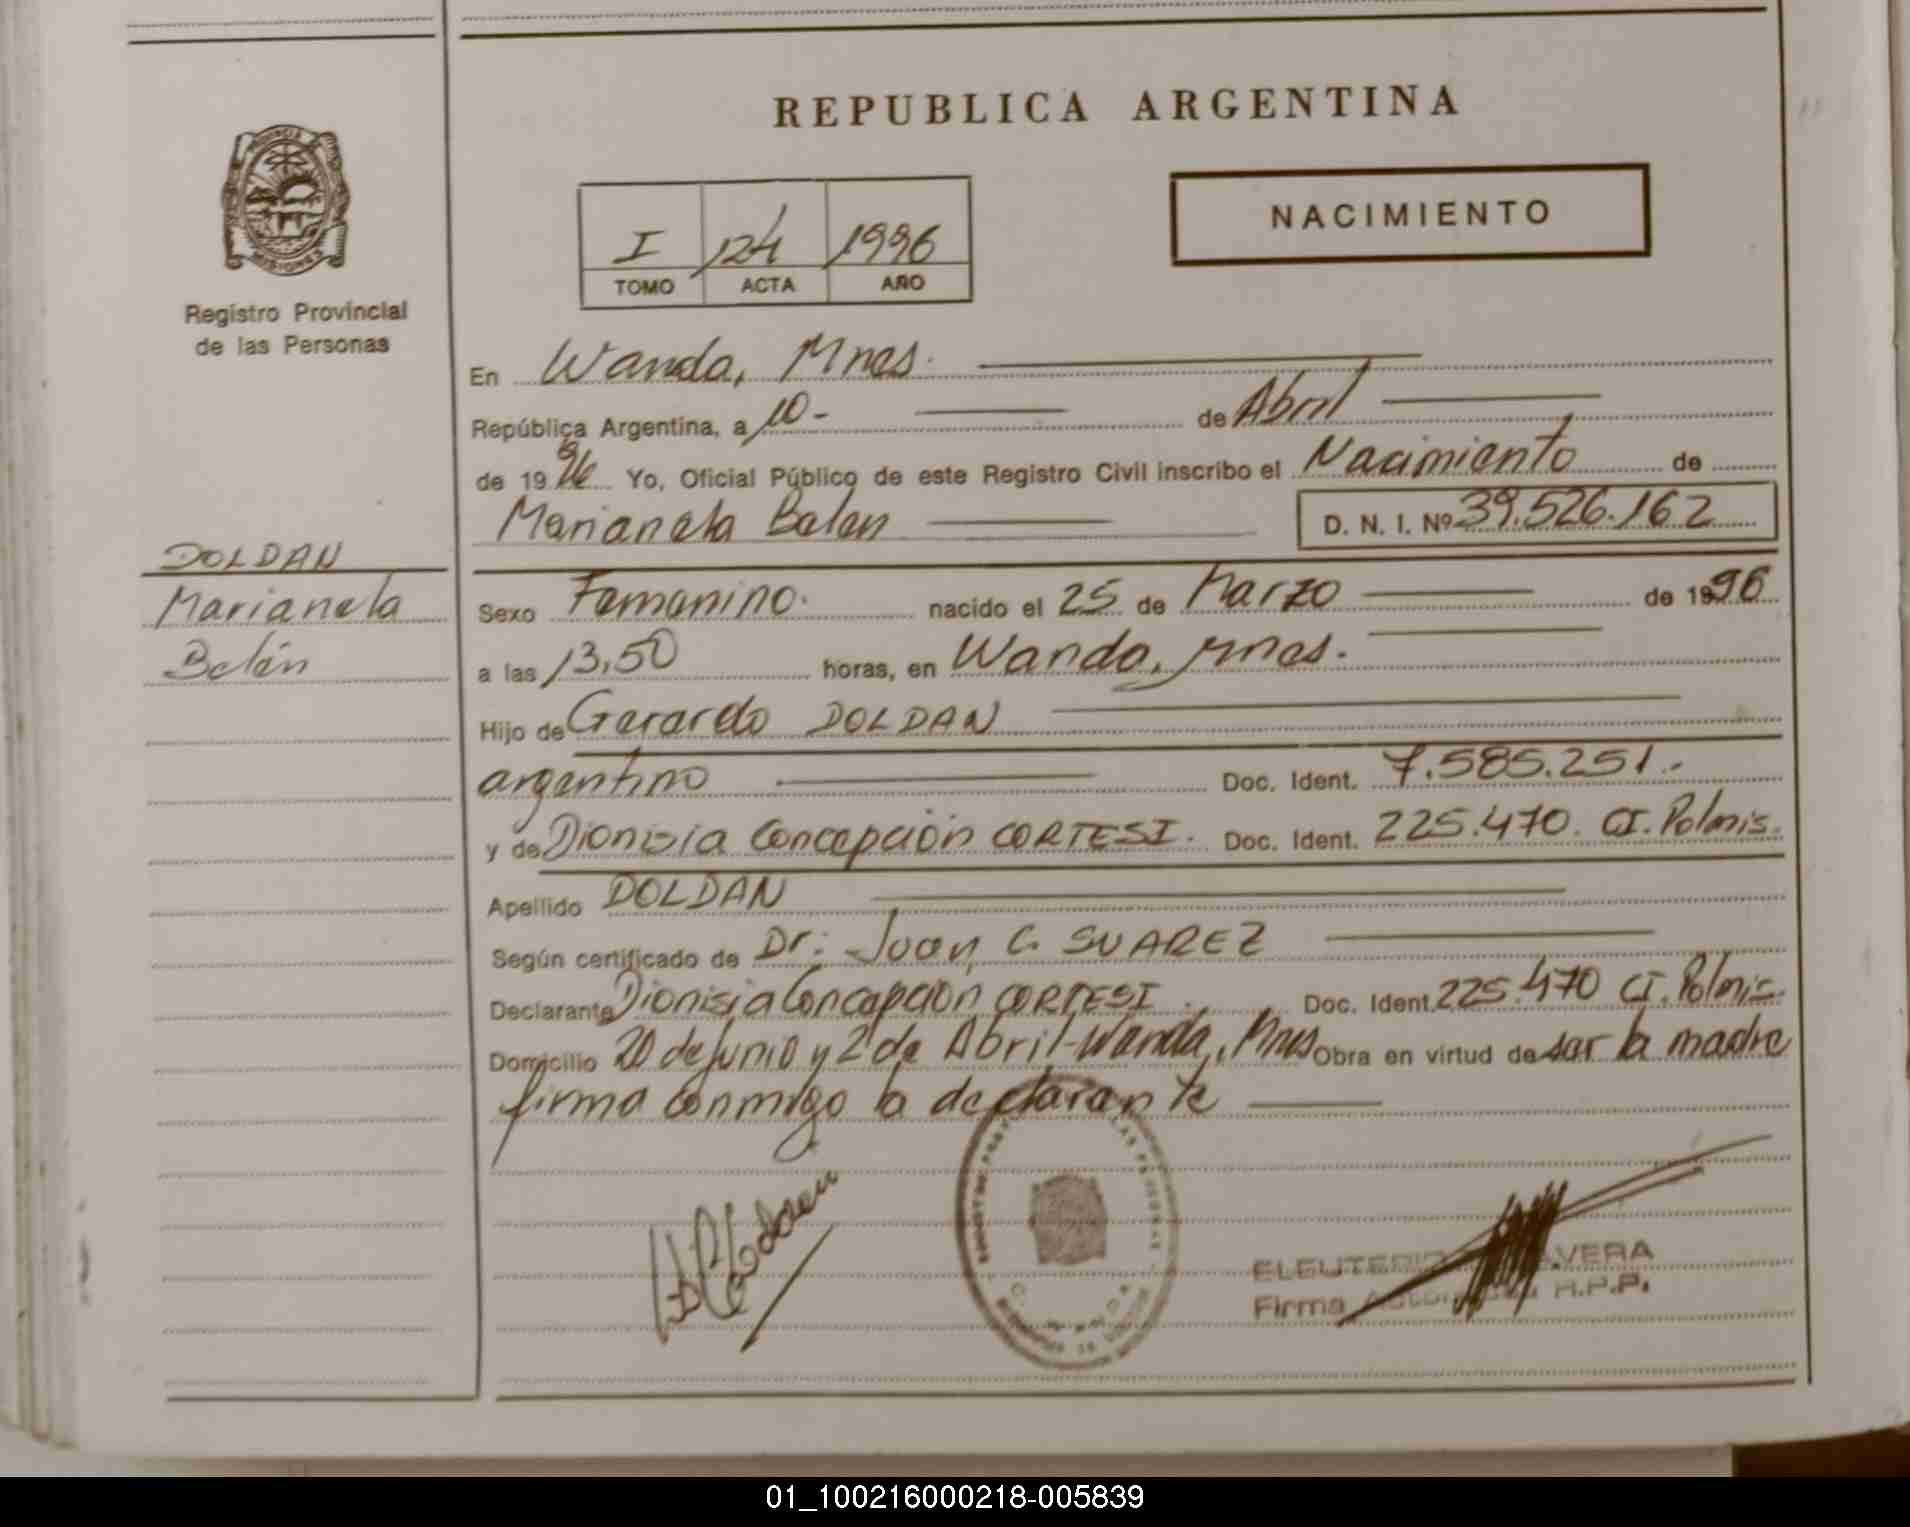 REPUBLICA ARGENTINA
PROVINCIA
MISIONES
Registro Provincial
de las Personas
I 124 1996
TOMO ACTA AÑO
NACIMIENTO
En Wanda, Mnes.
República Argentina, a 10- de Abril
de 1996 Yo, Oficial Público de este Registro Civil inscribo el Nacimiento de
Marianela Belen D. N. I. Nº 39.526.162
DOLDAN
Marianela
Belén
Sexo Femenino. nacido el 25 de Marzo de 1996
a las 13,50 horas, en Wanda, Mnes.
Hijo de Gerardo DOLDAN
argentino Doc. Ident. 7.585.251.-
y de Dionisia Concepción CORTESI. Doc. Ident. 225.470. CI. Polmis.
Apellido DOLDAN
Según certificado de Dr: Juan C. SUAREZ
Declarante Dionisia Concepción CORTESI. Doc. Ident. 225.470 CI. Polmis.
Domicilio 20 de Junio y 2 de Abril-Wanda, Mnes Obra en virtud de ser la madre
firma conmigo la declarante
ELEUTERIO
Firma R.P.P.
01_100216000218-005839